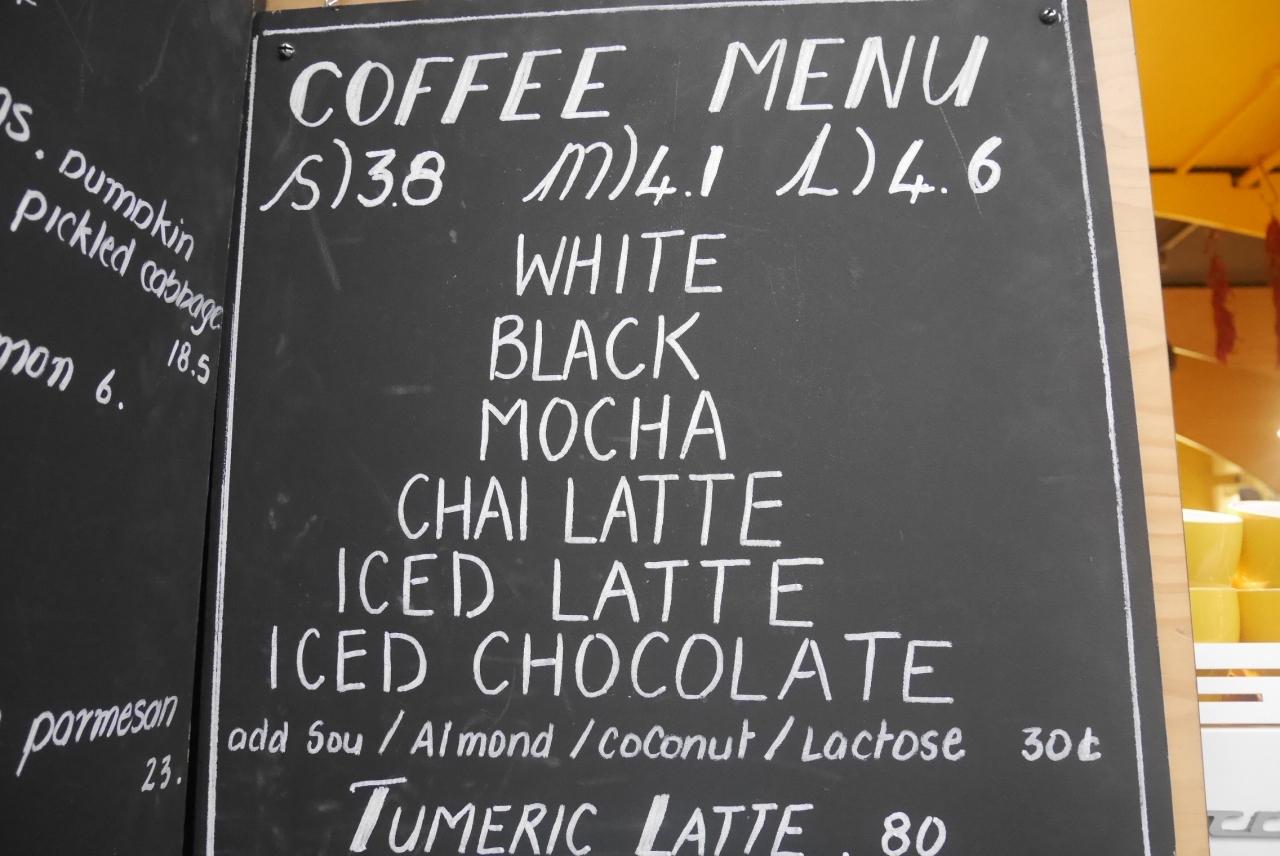 s. Dumpkin
Pickled cabbage
18.5
mon 6.
parmesan
23.
COFFEE MENU
S)3.8 M)4.1 L)4.6
WHITE
BLACK
MOCHA
CHAI LATTE
ICED LATTE
ICED CHOCOLATE
add Sou / Almond / Coconut / Lactose 30¢
TUMERIC LATTE . 80